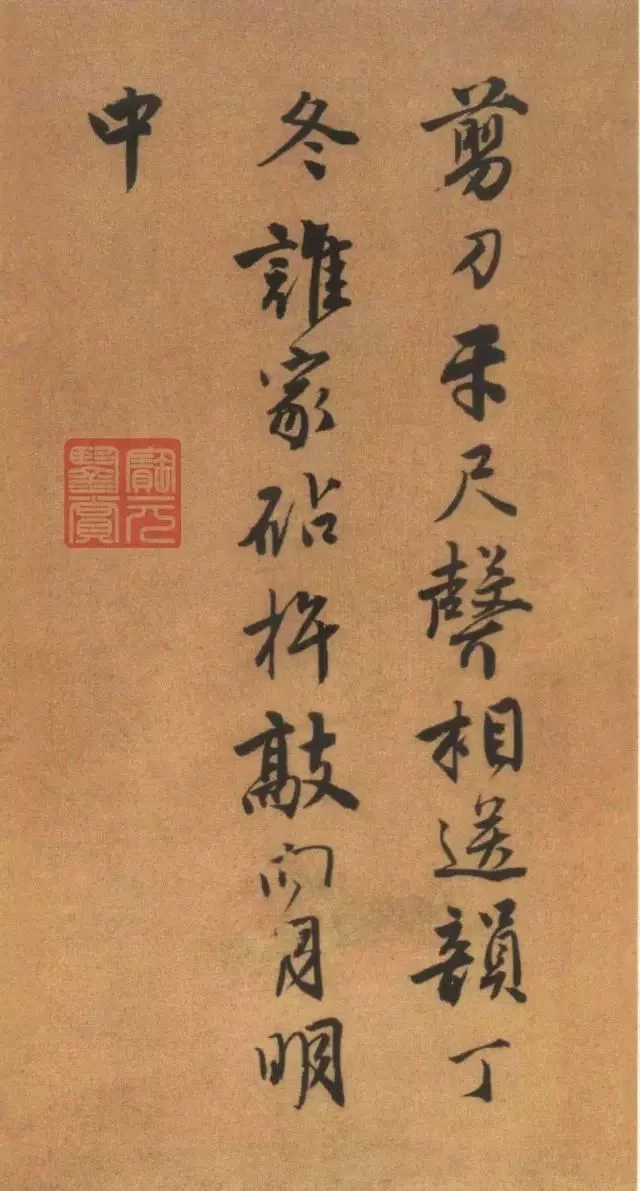 剪刀牙尺聲相送韻丁
冬誰家砧杵敲向月明
中
元
鑒賞